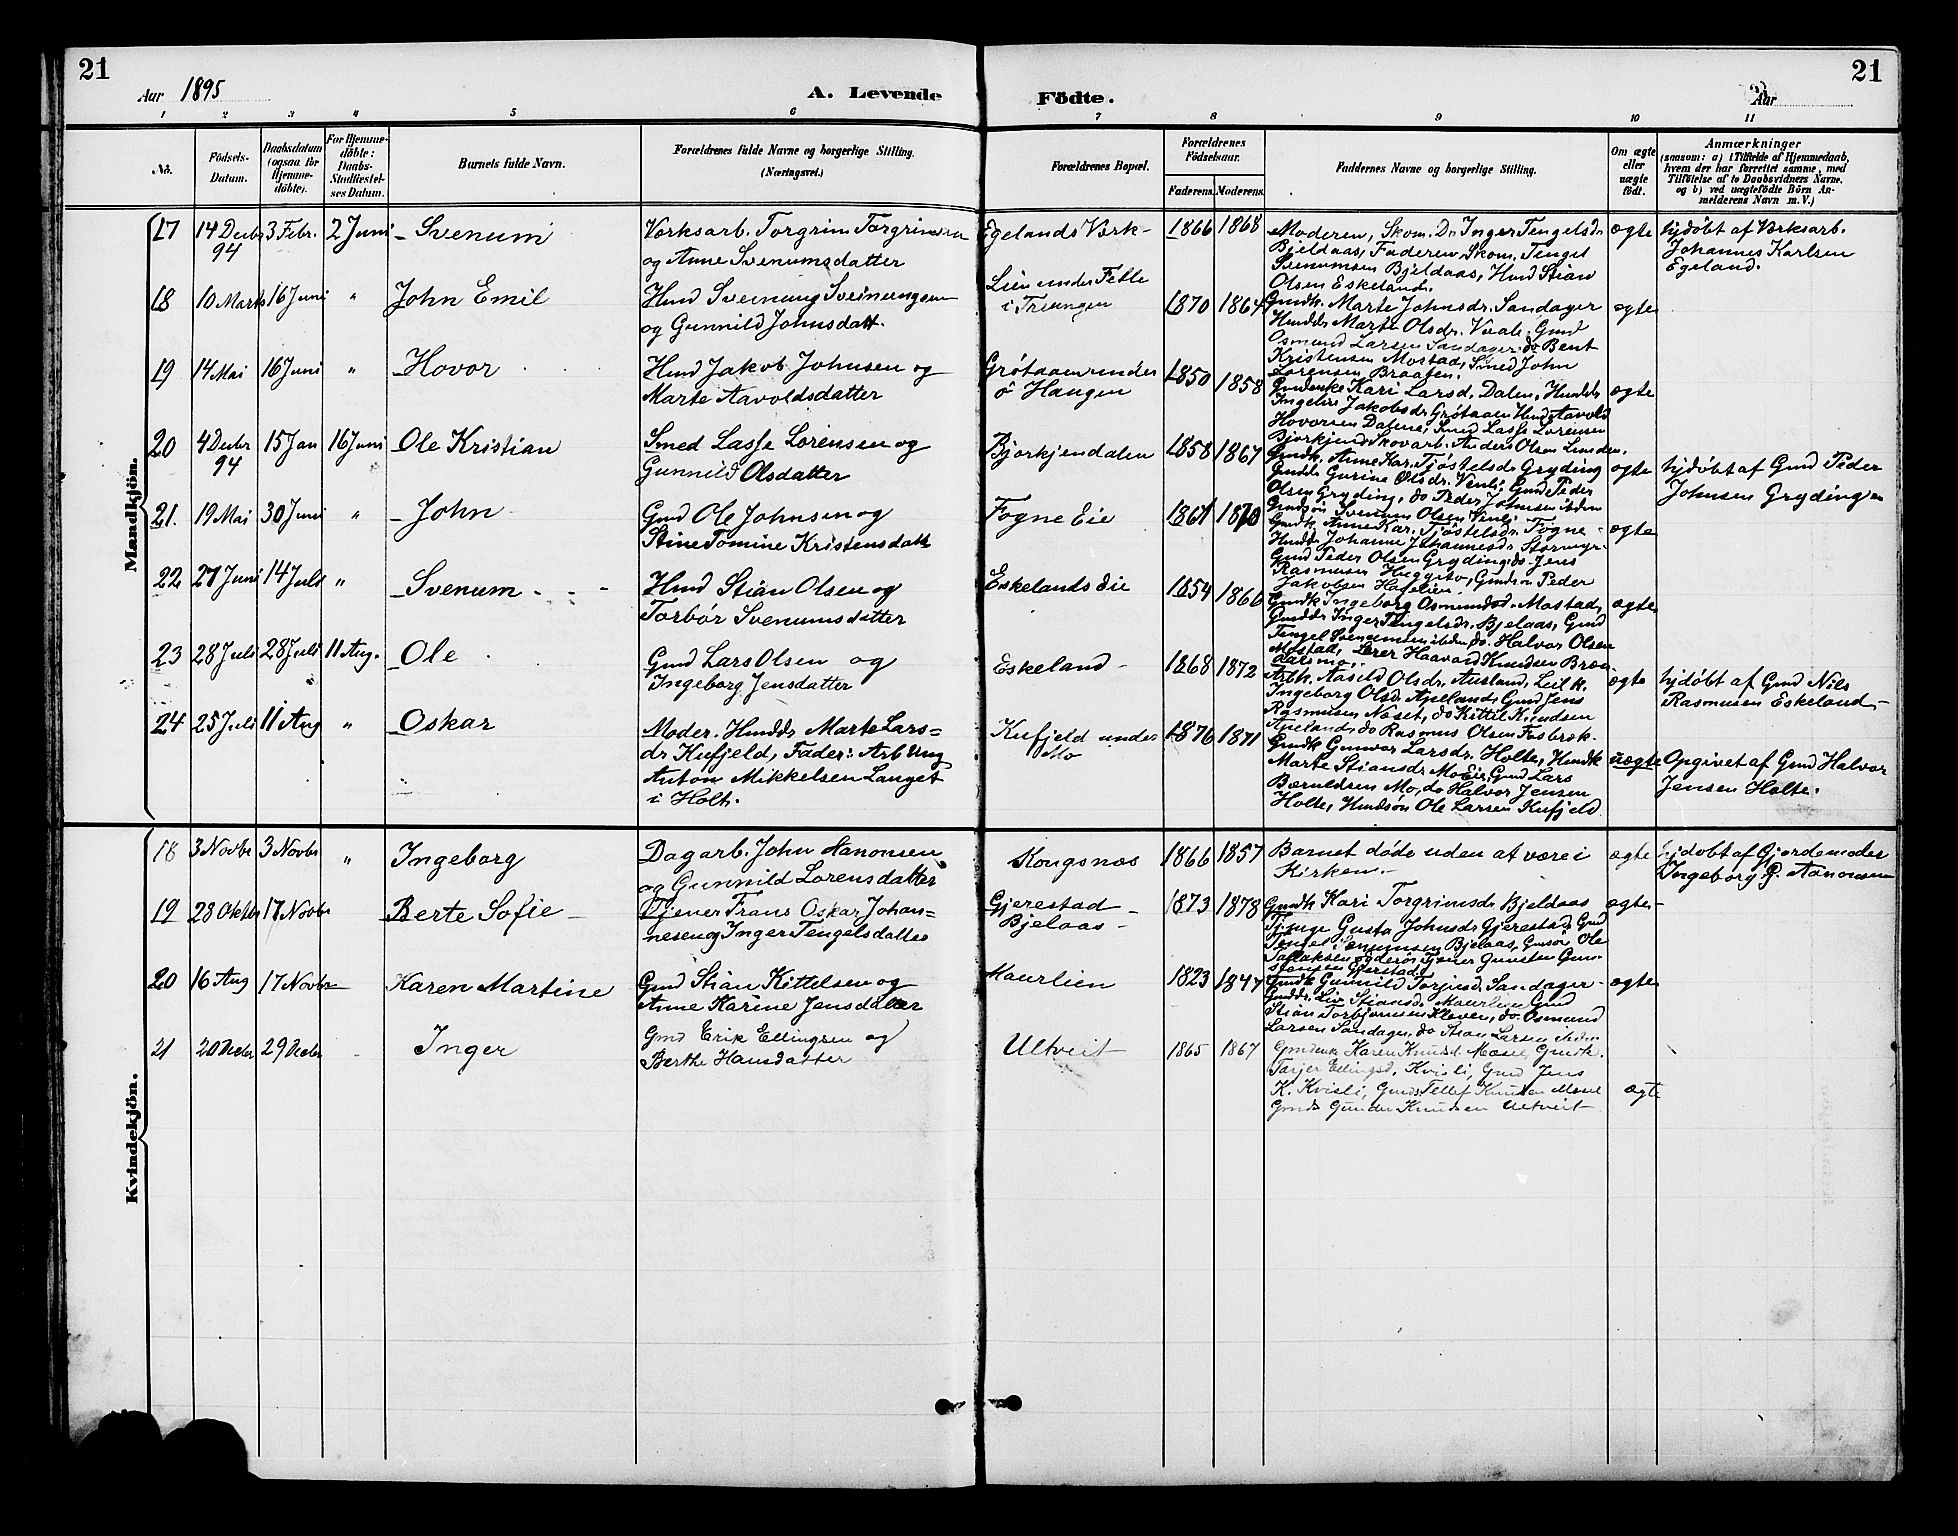 21
Aar 1895
A. Levende
Födte.
21
Aar
1 2 3 4 5 6 7 8 9 10 11
No.
Födsels-Datum.
Daabsdatum (ogsaa for Hjemmedöbte).
For Hjemmedöbte: Daabs-Stadfæstelses Datum.
Barnets fulde Navn.
Forældrenes fulde Navne og borgerlige Stilling. (Næringsvei.)
Forældrenes Bopæl.
Forældrenes Födselsaar.
Faderens. Moderens.
Faddernes Navne og borgerlige Stilling.
Om ægte eller uægte födt.
Anmærkninger
(saasom: a) i Tilfælde af Hjemmedaab,
hvem der har forrettet samme, med
Tilföielse af to Daabsvidners Navne.
og b) ved uægtefödte Börn An-
melderens Navn m. V.)
Mandkjön.
17 14 Decbr 94 3 Febr. 2 Juni Svenum
Værksarb. Torgrim Torgrimsen
og Anne Svenumsdatter
Egelands Værk 1866 1868
Moderen, Skom. Dr Inger Tengelsdr
Bjeldaas, Faderen, Skom. Tengel
Svenumsen Bjeldaas, Hmd Stian
Olsen Eskeland.
ægte
hjdøbt af Værksarb.
Johannes Karlsen
Egeland.
18 10 Marts 16 Juni " John Emil
Hmd Sveinung Sveinungsen
og Gunnild Johnsdatt.
Lien under Felle
i Treungen 1870 1864
Gmdk. Marte Johnsdr. Sandager
Hmddr Marte Olsdr. Gmd
Osmund Larsen Sandager, do Bent
Kristensen Mostad, Smed John
Lorensen Braaten.
ægte
19 14 Mai 16 Juni " Hovor
Hmd Jakob Johnsen og
Marte Aavoldsdatter
Grötaaen under
ö Haugen 1850 1858
Gmdenke Kari Larsd. Dalen, Hmddr
Ingeborg Jakobsdr Grøtaaen Hmd Aavold
Hovorsen Dalene, Smed Lasse Lorensen
Bjorkjend Skovarb. Anders Olsen Lunden.
ægte
20 4 Decbr 94 15 Jan 16 Juni Ole Kristian
Smed Lasse Lorensen og
Gunnild Olsdatter
Bjorkjendalen 1858 1867
Gmdk. Anne Kar. Tjöstelsdr Gryding
Gmddr Gurine Olsdr. Venli, Gmd Peder
Olsen Gryding, do Peder Johnsen ibden
Gmdsön Svenum Olsen Venli.
ægte
hjdøbt af Gmd Peder
Johnsen Gryding
21. 19 Mai 30 Juni " John
Gmd Ole Johnsen og
Stine Tomine Kristensdatt
Fogne Eie 1861 1870
Gmdk. Anne Kar. Tjöstelsdr. Fogne
Hmddr Johanne Johannesdr Stormyr
Gmd Peder Olsen Gryding, do Jens
Rasmusen Gmdsön Peder
Jakobsen
ægte
22 27 Juni 14 Juli " Svenum
Hmd Stian Olsen og
Torbör Svenumsdatter
Eskelands eie 1854 1866
Gmdk Ingeborg Osmundsd. Mostad,
Gmddr Inger Tengelsdr. Bjelaas, Gmd
Tengel Svenumsen ibden do. Halvor Olsen
Mostad, Lærer Haavard Knudsen
dalsmo.
ægte
23 28 Juli 28 Juli 11 Aug. Ole
Gmd Lars Olsen og
Ingeborg Jensdatter
Eskeland 1868 1872
Arbk. Aasild Olsdr. Ausland,
Ingeborg Olsd. Apeland, Gmd Jens
Rasmusen Næset, do Kittil Knudsen
Apeland, do Rasmus Olsen Fosbræk.
ægte
hjdøbt af Gmd Nils
Rasmusen Eskeland
24 25 Juli 11 Aug " Oskar
Moder. Hmddr Marte Lars=
dr Kufjeld, Fader: Arb Ung
Anton Mikkelsen Langet
i Holt.
Kufjeld under
Mo 1876 1871
Gmdk Gunvor Larsdr. Holte, Hmdk
Marte Stiansdr Mo Eie, Gmd Lars
Mo, do Halvor Jensen
Holte, Hmdsön Ole Larsen Kufjeld
uægte
Opgivet af Gmd Halvor
Jensen Holte.
Kvindekjön.
18 3 Novbr 3 Novbr " Ingeborg
Dagarb. John Aanonsen
og Gunnild Lorensdatter
Kongsnæs 1866 1857
Barnet døde uden at være i
Kirken.
ægte
hjdøbt af Gjordemoder
Ingeborg P. Aanonsen
19 28 Oktbr 17 Novbr Berte Sofie
Tjener Frans Oskar Johan=
nesen og Inger Tengelsdatter
Gjerestad
Bjelaas 1873 1878
Gmdk Kari Torgrimsdr Bjeldaas
Gusta Johnsdr Gjerestad, Gmd
Tengel Svenumsen Bjelaas, Gmsön Ole
Tjener Gunsten Gun-
stensen Gjerestad
ægte
20 16 Aug 17 Novbr Karen Martine
Gmd Stian Kittelsen og
Anne Karine Jensdatter
Maurlien 1823 1847
Gmdk Gunnild Torjusd. Sandager
Gmddr. Liv Stiansdr Maurlien, Gmd
Stian Torbjörnsen Klever, do Osmund
Larsen Sandager, do Stian Larsen ibden
ægte
21 20 Decbr 29 Decbr Inger
Gmd Erik Ellingsen og
Berthe Hansdatter
Ultveit 1865 1867
Gmdenk Karen Knutsd. Gmdk.
Tarjer Ellingsd. Kvisli, Gmd Jens
K. Kvisli, Gmds. Tellef Knutsen
Gmds Gunder Knudsen Ultveit
ægte